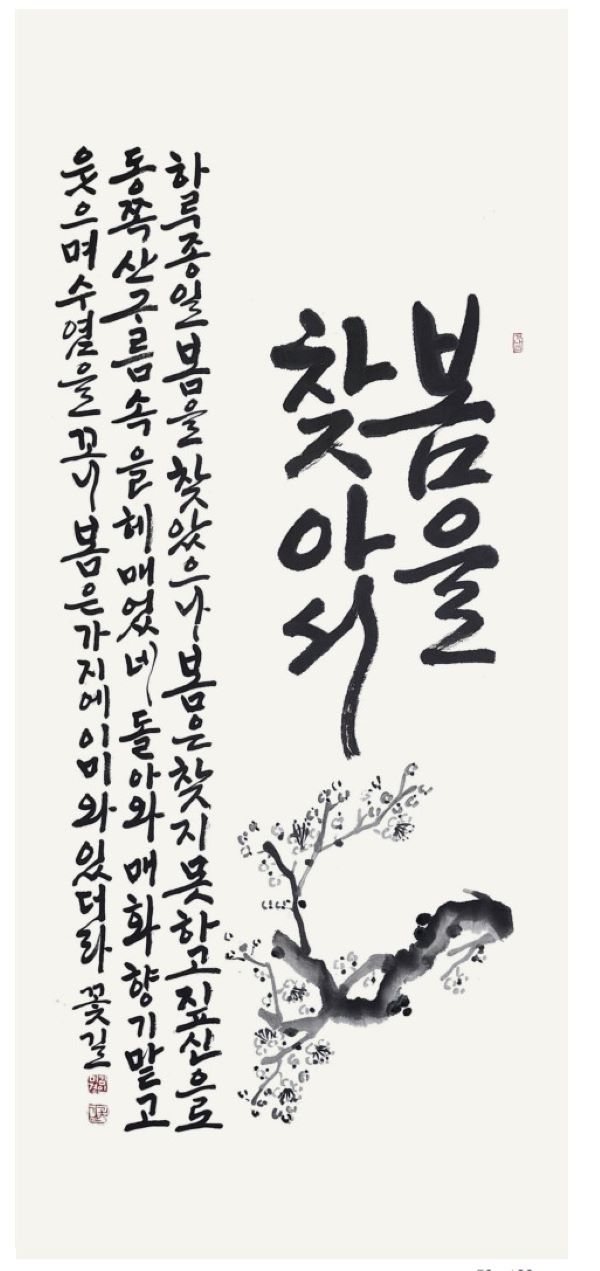 봄을
찾아서
하루종일봄을찾았으나봄은찾지못하고짚산으로
동쪽산구름속을헤매었네돌아와매화향기맡고
웃으며수염을꼬니봄은가지에이미와있더라 꽃길